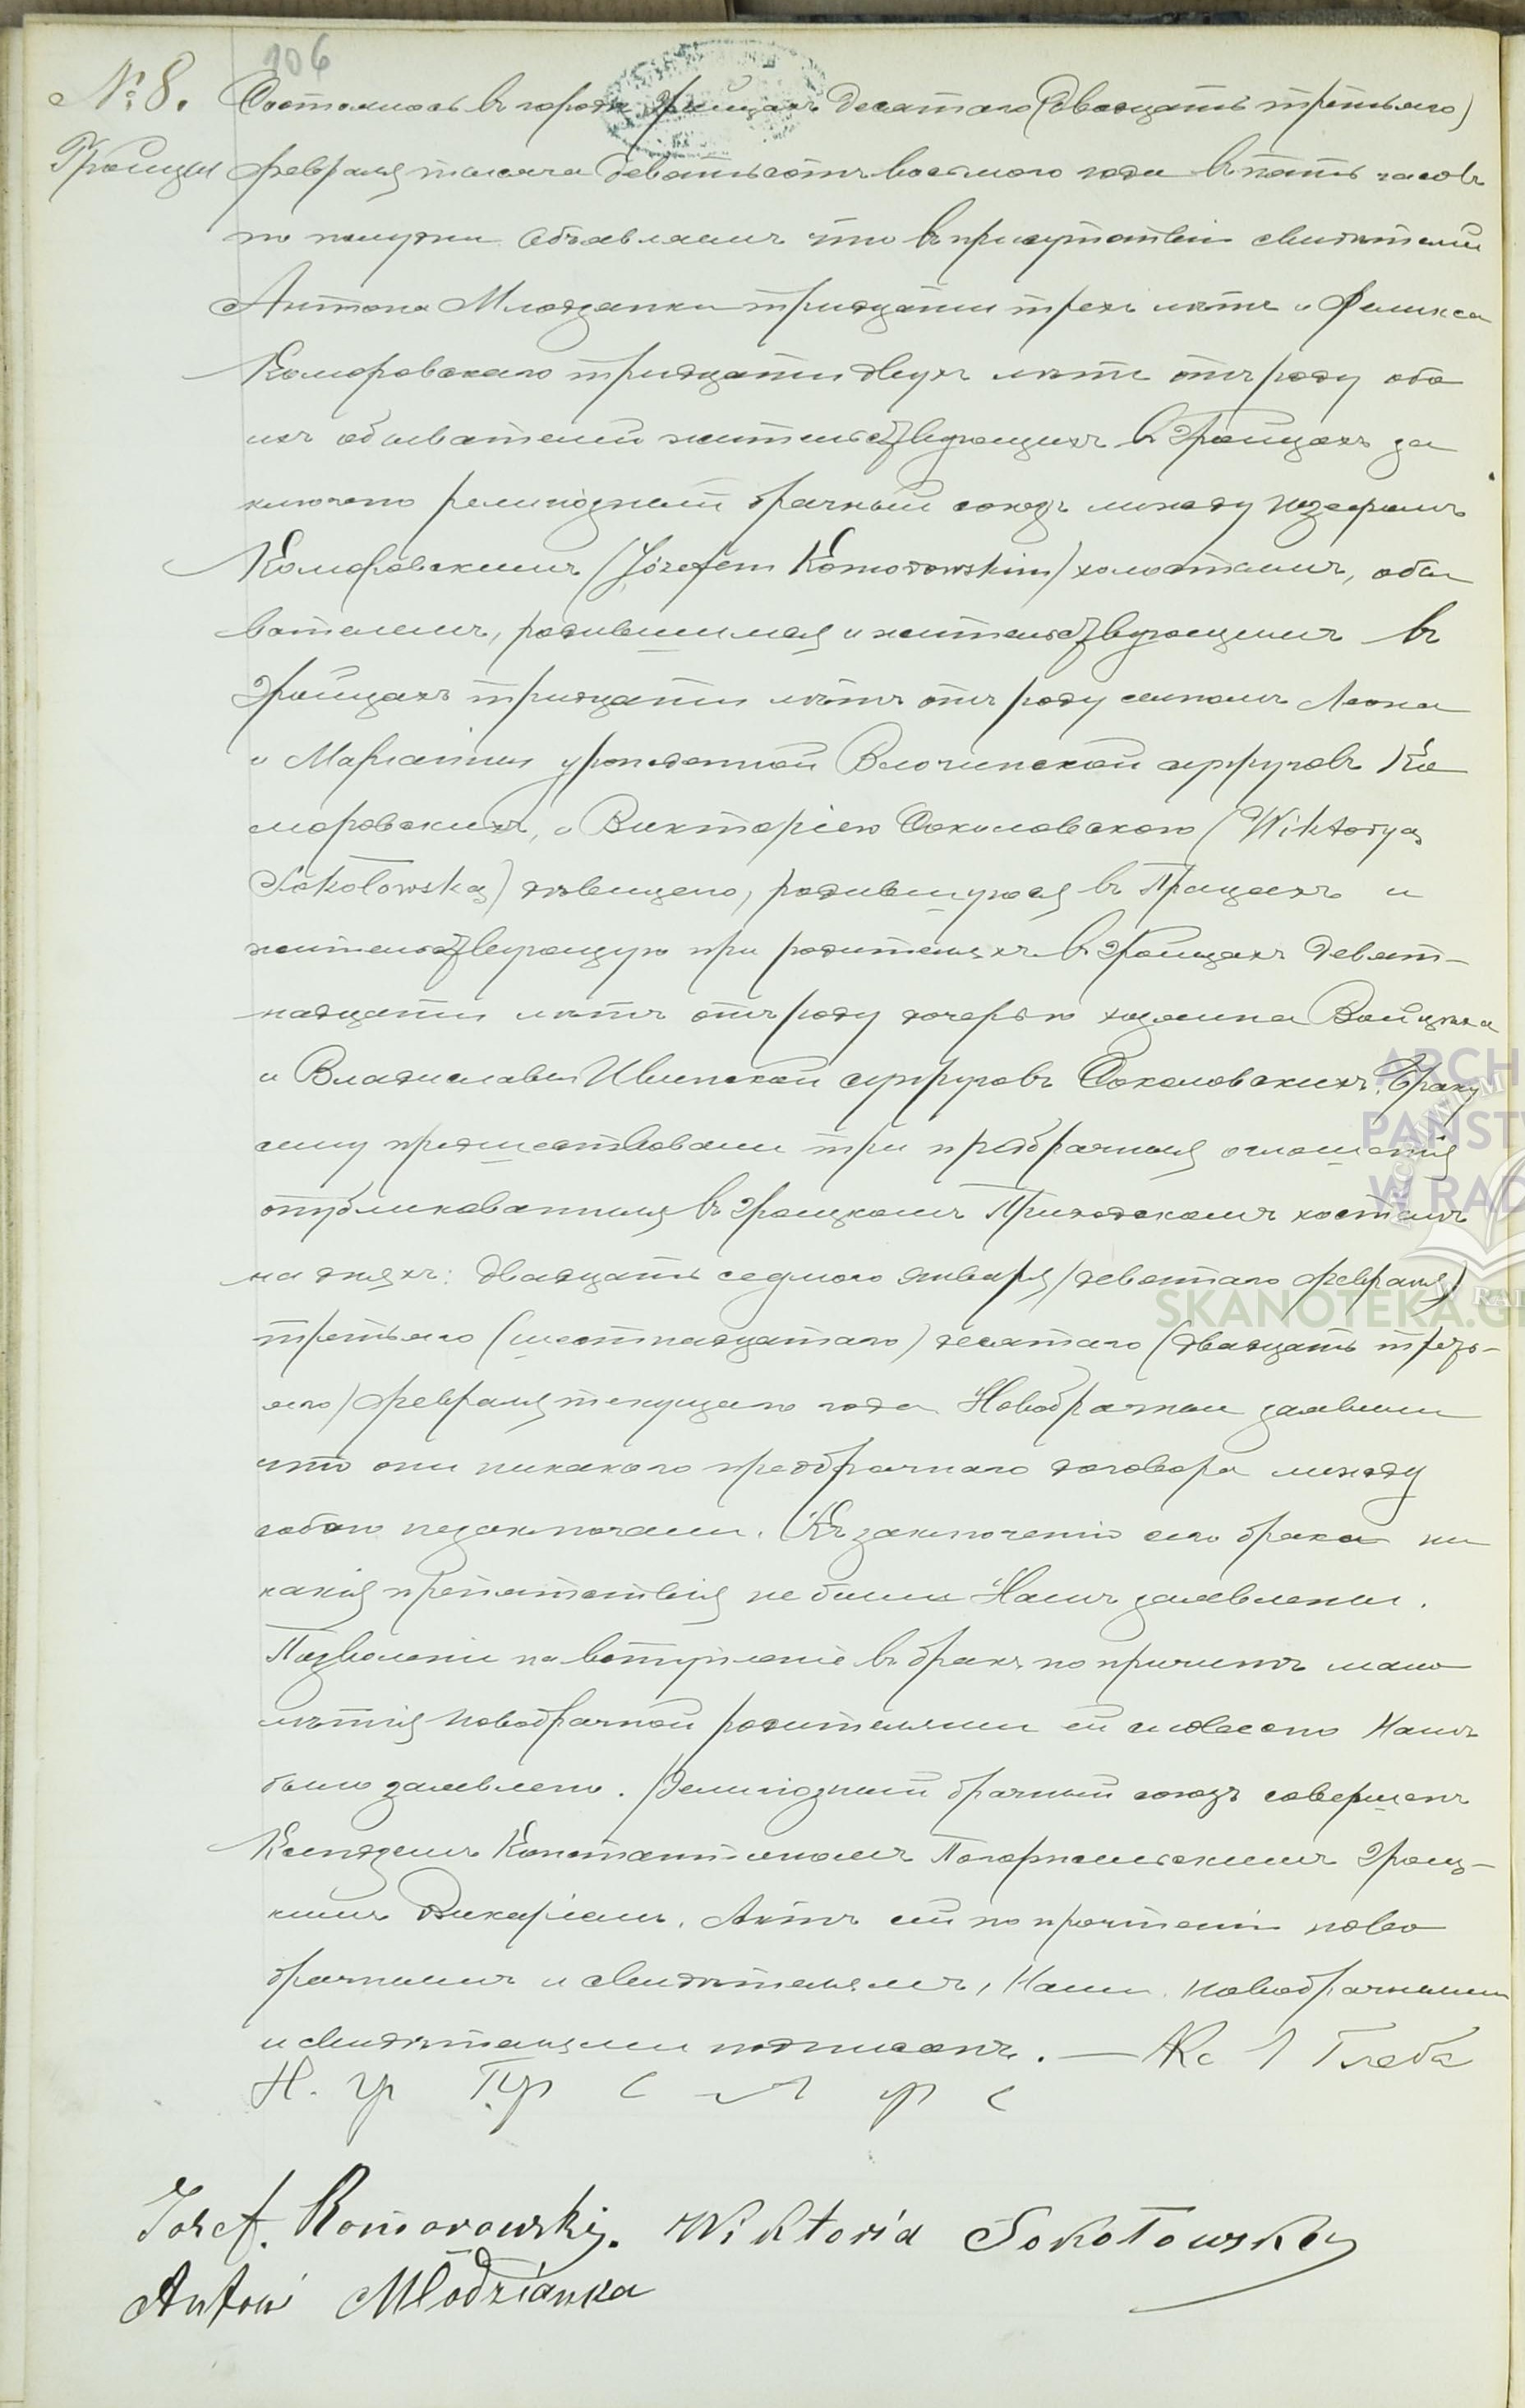 106
№ 8.
Гроицы
Состоялось въ городѣ Гроицахъ десятаго (двадцать третьяго)
февраля тысяча девятьсотъ восьмого года въ пять часовъ
по полудни Объявляемъ что въ присутствіи свидѣтелей
Антона Млодзянки тридцати трехъ лѣтъ и Феликса
Коморовскаго тридцати двухъ лѣтъ отъ роду обо
ихъ обывателей жительствующихъ въ Гроицахъ за
ключено религіозный брачный союзъ между Юзефомъ
Коморовскимъ (Józefem Komorowskim) холостымъ, обы
вателемъ, родившимся и жительствующимъ въ
Гроицахъ тридцати лѣтъ отъ роду сыномъ Леона
и Маріанны урожденной супруговъ Ко
моровскихъ, и Викторіею Соколовскою (Wiktoryą
Sokołowską) дѣвицею, родившуюся въ и
жительствующую при родителяхъ въ Гроицахъ девят-
надцати лѣтъ отъ роду дочерью Войцѣха
и Владиславы супруговъ Соколовскихъ. Браку
сему предшествовали три предбрачныя оглашенія
опубликованныя въ Гроицкомъ Приходскомъ костелѣ
на дняхъ: двадцать седмого Января (девятаго февраля)
третьяго (шестнадцатаго) десятаго (двадцать треть-
яго) февраля текущаго года Новобрачныи заявили
что они никакого предбрачнаго договора между
собою незаключали. Къ заключенію сего брака ни
какія препятствія не были Намъ заявлены.
Позволеніе на вступленіе въ бракъ по причинѣ мало
лѣтія новобрачной родителями ей словесно Намъ
было заявлено. Религіозный брачный союзъ совершенъ
Ксендземъ Константиномъ Гроиц-
кимъ Викаріемъ. Актъ сей по прочтеніи ново
брачнымъ и свидѣтелямъ, Нами, новобрачными
и свидѣтелями подписанъ. — Кс Глеба
Józef. Komorowski. Wiktoria Sokołowska
Antoni Młodzianka
ARCH
PAŃST
W RAD
SKANOTEKA.G